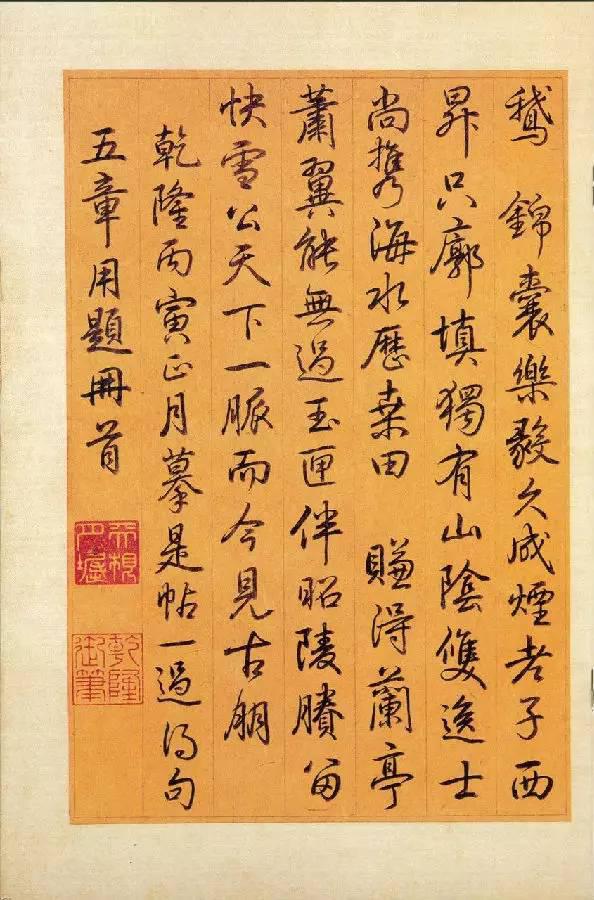 鵝 錦囊樂毅久成煙老子西
昇只廓填獨有山陰雙逸士
尚攜海水歷桑田 賺得蘭亭
蕭翼能無過玉匣伴昭陵賸留
快雪公天下一脈而今見古朋
乾隆丙寅正月摹是帖一過得句
五章用題冊首
乾隆
御筆